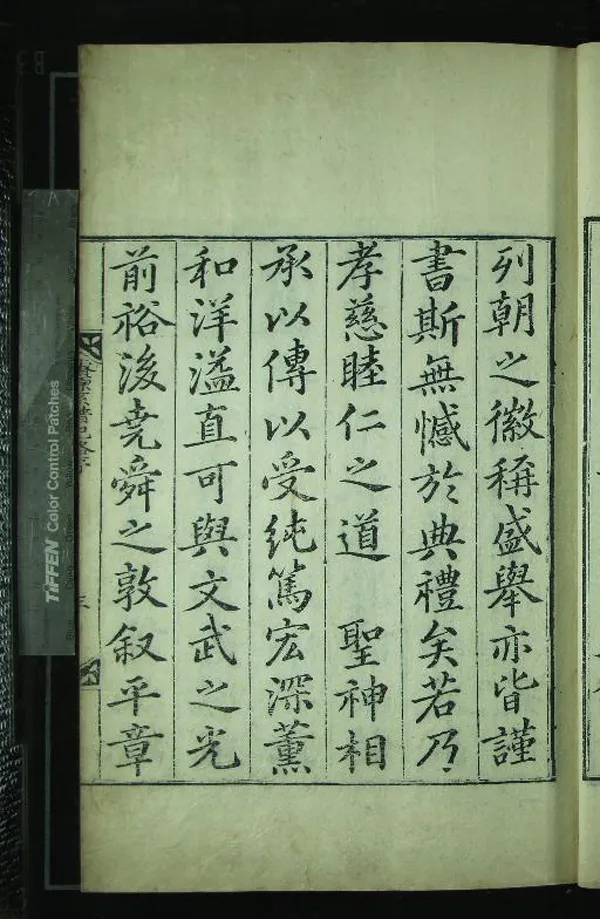 列朝之徽稱盛舉亦皆謹
書斯無憾於典禮矣若乃
孝慈睦仁之道 聖神相
承以傳以受純篤宏深薰
和洋溢直可與文武之光
前裕後堯舜之敦叙平章
三
TIFFEN Color Control Patches